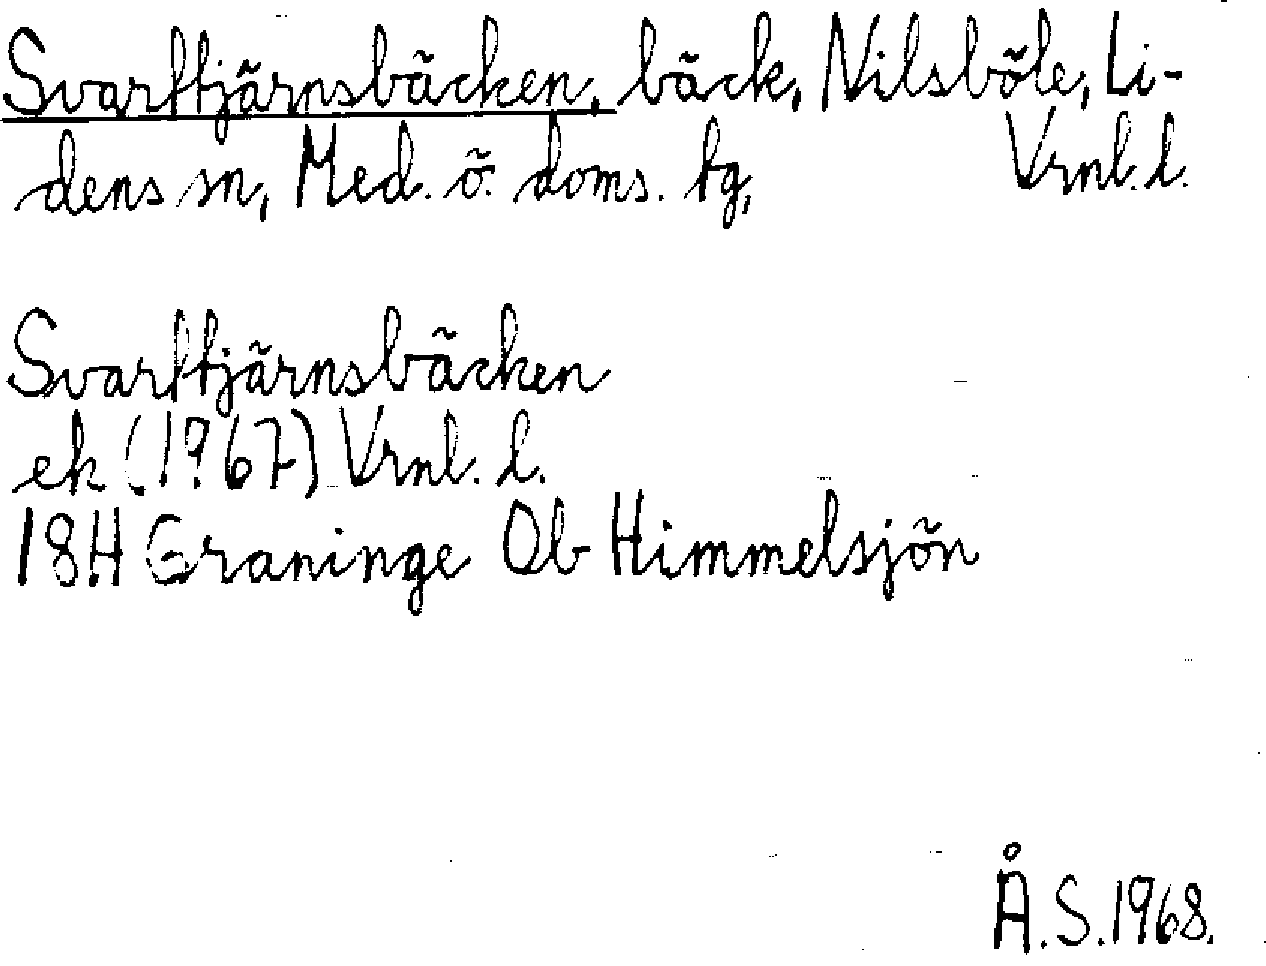 Svarttjärnsbäcken, bäck, Nilsböle, Li-
dens sn, Med. ö. doms. tg, Vrnl. l.
Svarttjärnsbäcken
ek (1967) Vrnl. l.
18H Graninge Ob Himmelsjön
Å.S.1968.